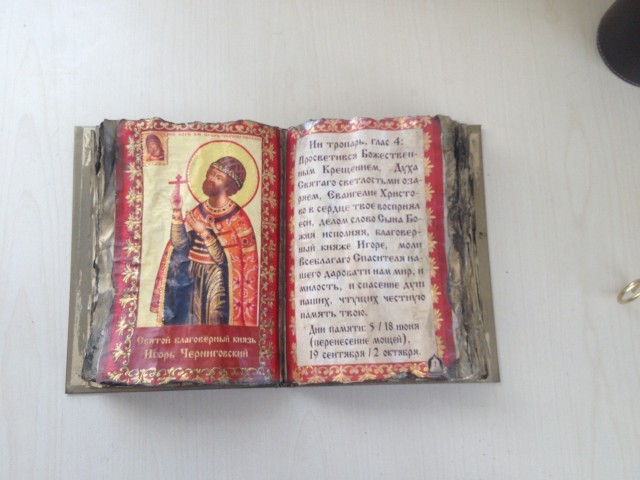 Святой благоверный князь
Игорь Черниговский
Ин тропарь, глас 4:
Просветився Божествен-
ным Крещением, Духа
Святаго светлостьми оза-
ряем, Евангелие Христо-
во в сердце твое восприял
еси, делом слово Сына Бо-
жия исполняя, благовер-
ный княже Игоре, моли
Всеблагаго Спасителя на-
шего даровати нам мир, и
милость, и спасение душ
наших, чтущих честную
память твою.
Дни памяти: 5 / 18 июня
(перенесение мощей),
19 сентября / 2 октября.